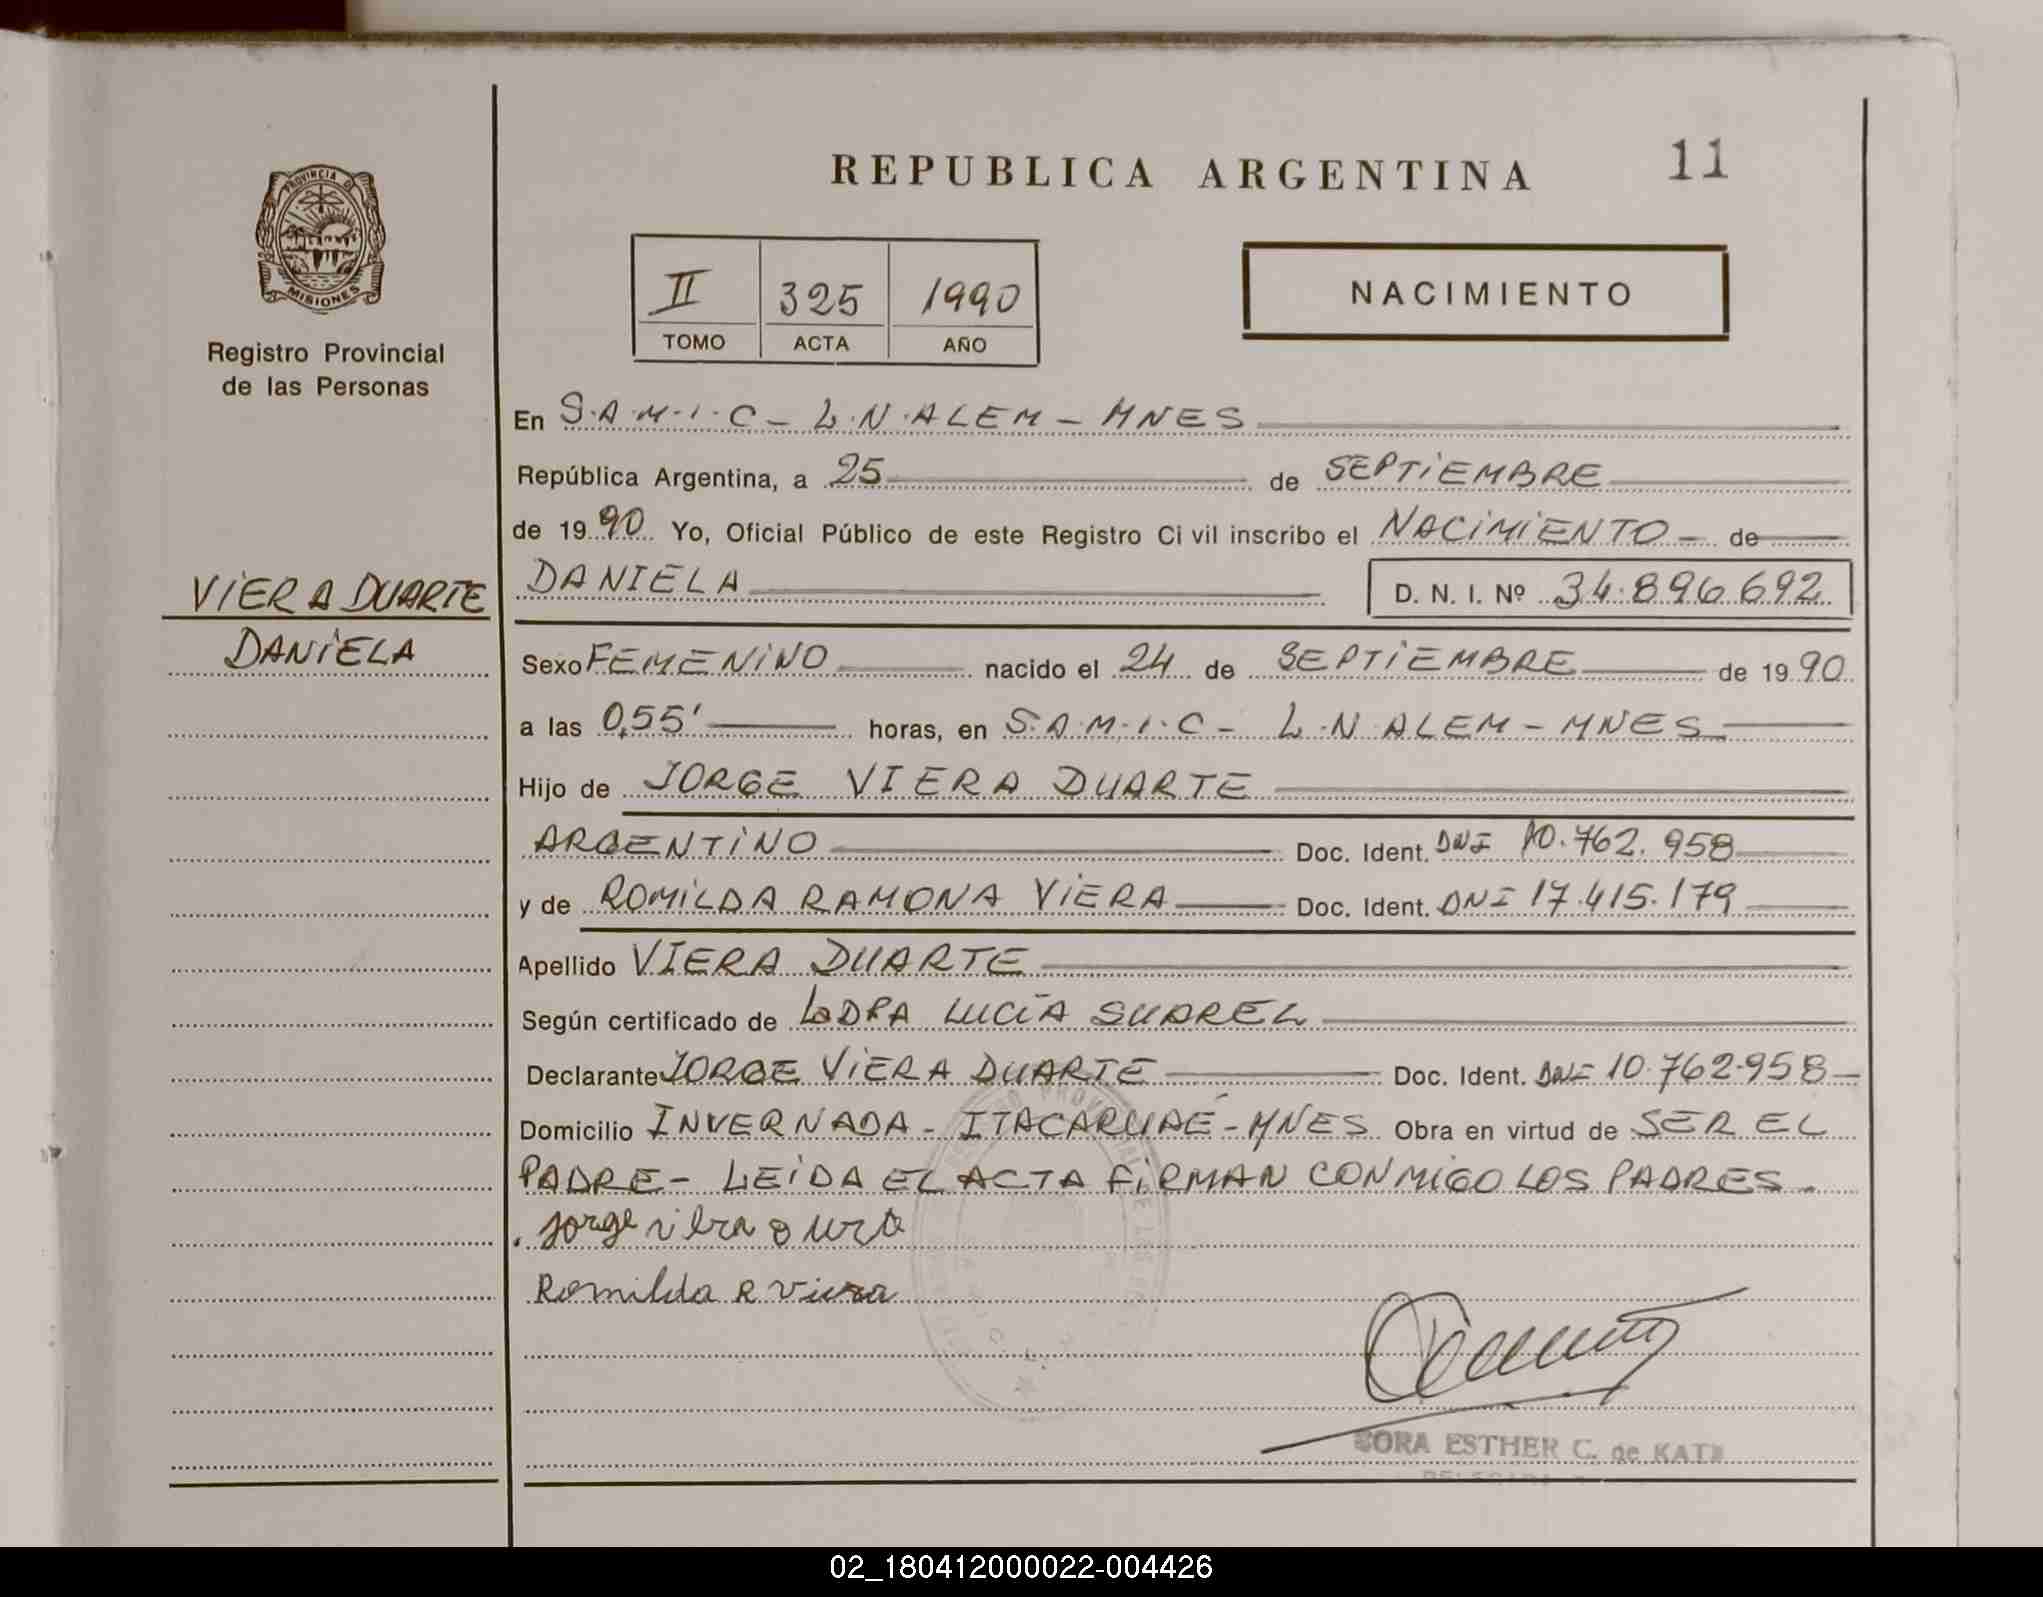 REPUBLICA ARGENTINA
11
PROVINCIA DE
MISIONES
Registro Provincial
de las Personas
II 325 1990
TOMO ACTA AÑO
NACIMIENTO
En S.A.M.I.C - L.N.ALEM - MNES
República Argentina, a 25 de SEPTIEMBRE
de 1990 Yo, Oficial Público de este Registro Ci vil inscribo el NACIMIENTO - de
VIERA DUARTE
DANIELA
DANIELA D. N. I. Nº 34.896.692
Sexo FEMENINO nacido el 24 de SEPTIEMBRE de 1990
a las 0,55' horas, en S.A.M.I.C - L.N ALEM - MNES
Hijo de JORGE VIERA DUARTE
ARGENTINO Doc. Ident. DNI 10.762.958
y de ROMILDA RAMONA VIERA Doc. Ident. DNI 17.415.179
Apellido VIERA DUARTE
Según certificado de LUCÍA
Declarante JORGE VIERA DUARTE Doc. Ident. DNI 10.762.958
Domicilio INVERNADA - ITACARUARÉ - MNES Obra en virtud de SER EL
PADRE - LEIDA EL ACTA FIRMAN CONMIGO LOS PADRES.
Jorge
Romilda R Viera
ESTHER C. de
02_180412000022-004426